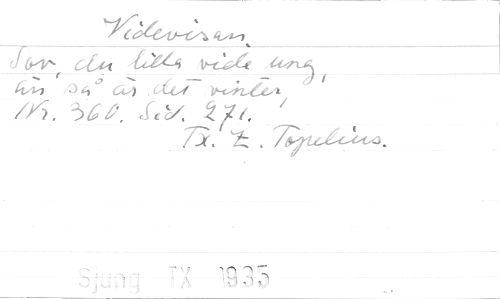 Videvisan.
Sov, du lilla vide ung,
än så är det vinter,
Nr. 360. Sid. 271.
Tx. Z. Topelius.
Sjung TX 1935